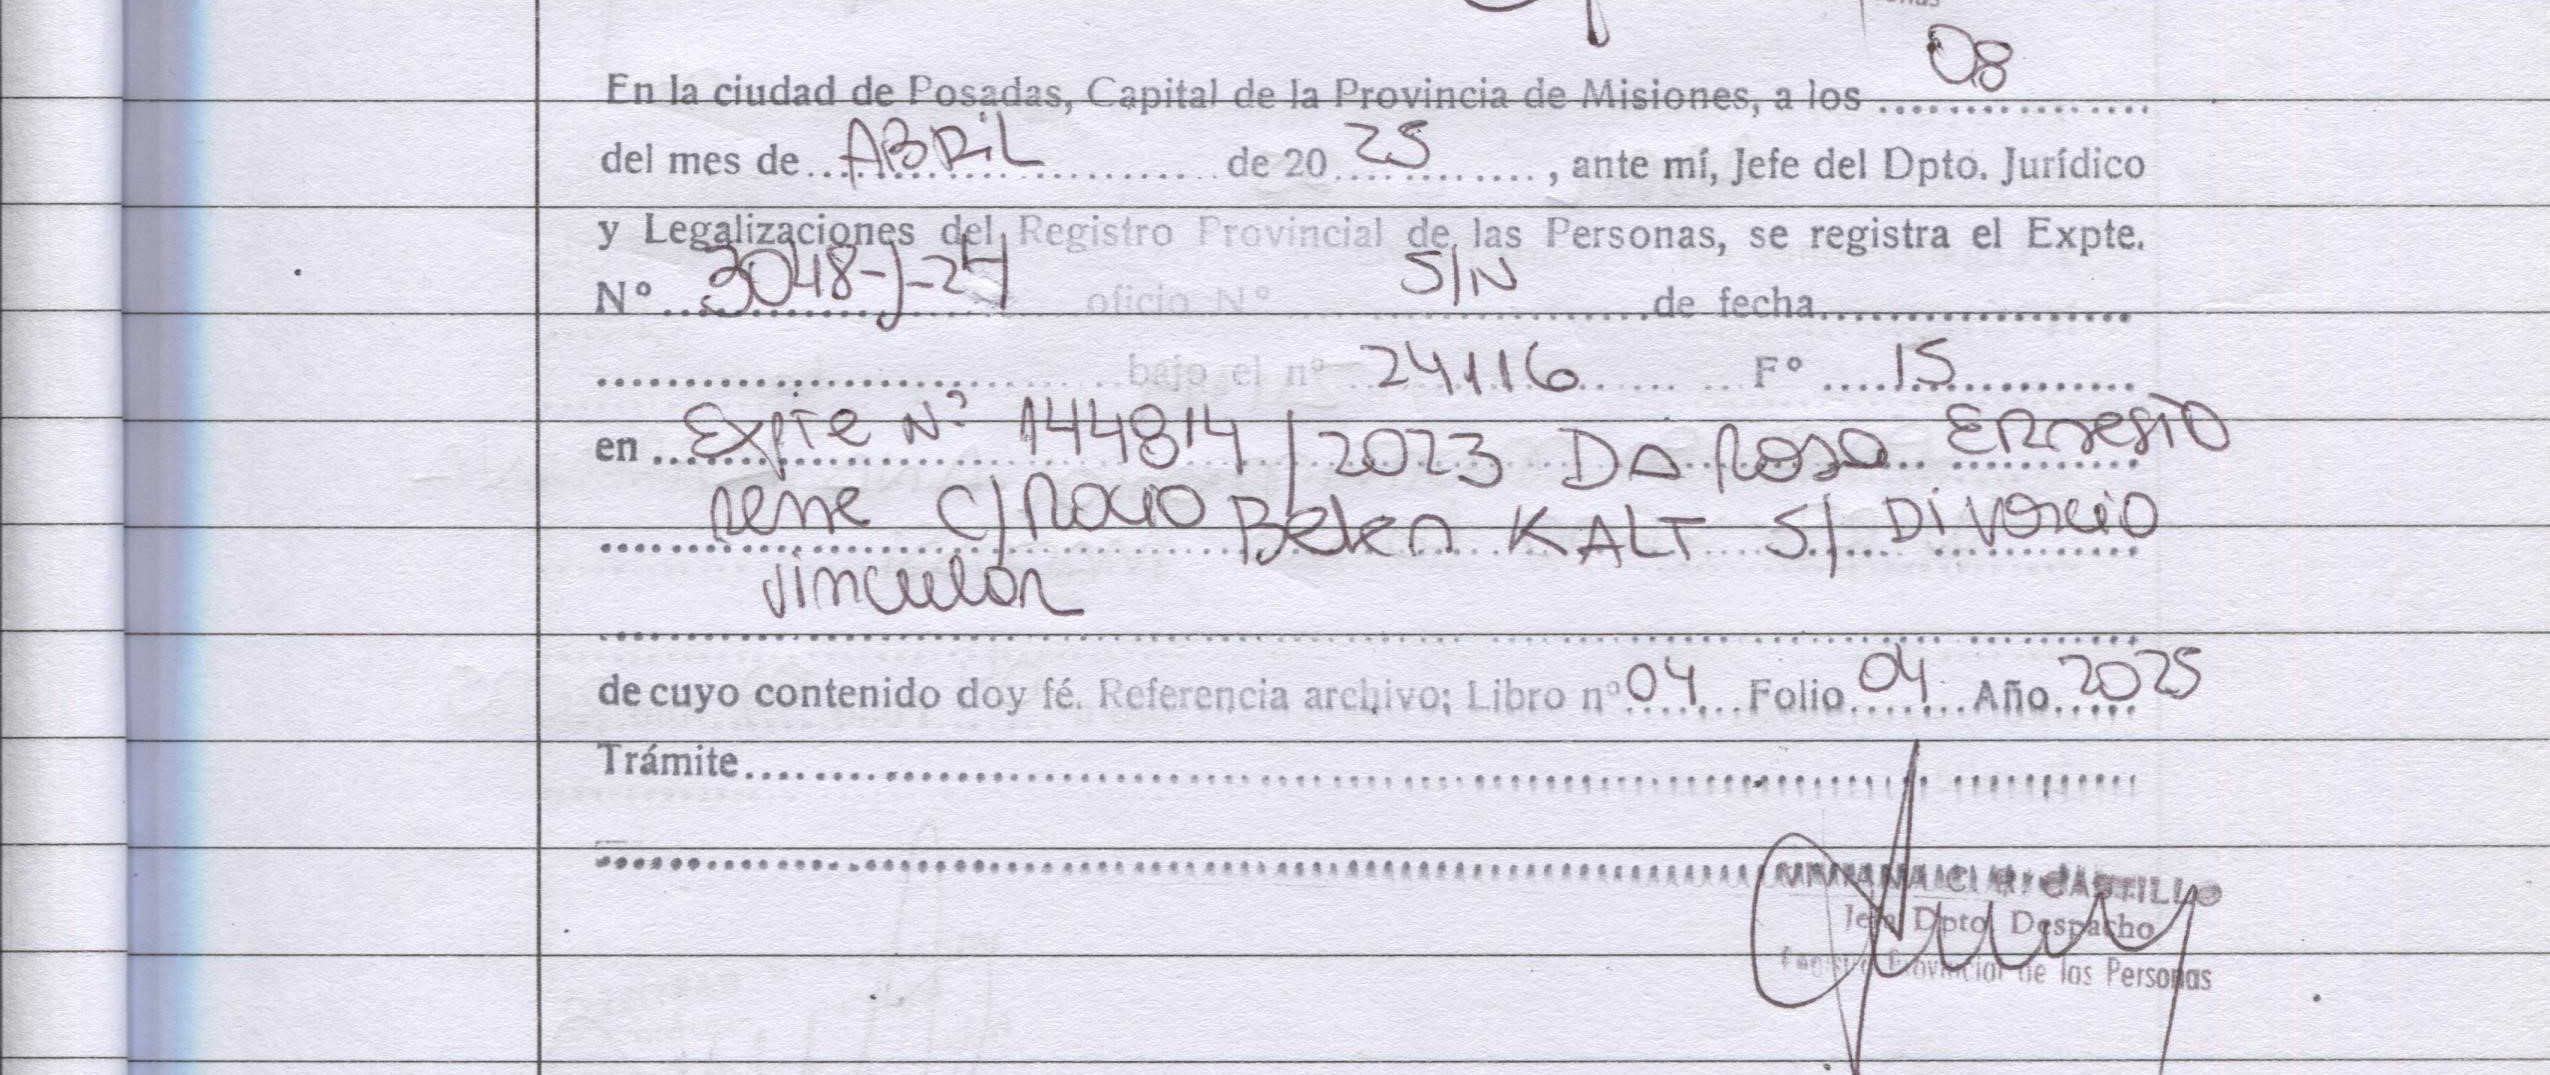 En la ciudad de Posadas, Capital de la Provincia de Misiones, a los 08
del mes de ABRIL de 20 25, ante mí, Jefe del Dpto. Jurídico
y Legalizaciones del Registro Provincial de las Personas, se registra el Expte.
Nº 3048-J-24 oficio Nº S/N de fecha
bajo el nº 24116 Fº 15
en Expte Nº 144814/2023 Da Rosa Ernesto
rene C/ Rocio Belen KALT S/ Divorcio
vincular
de cuyo contenido doy fé. Referencia archivo; Libro nº 04 Folio 04 Año 2025
Trámite
VIVIANA C. R. CASTILLO
Jefa Dpto. Despacho
Registro Provincial de las Personas